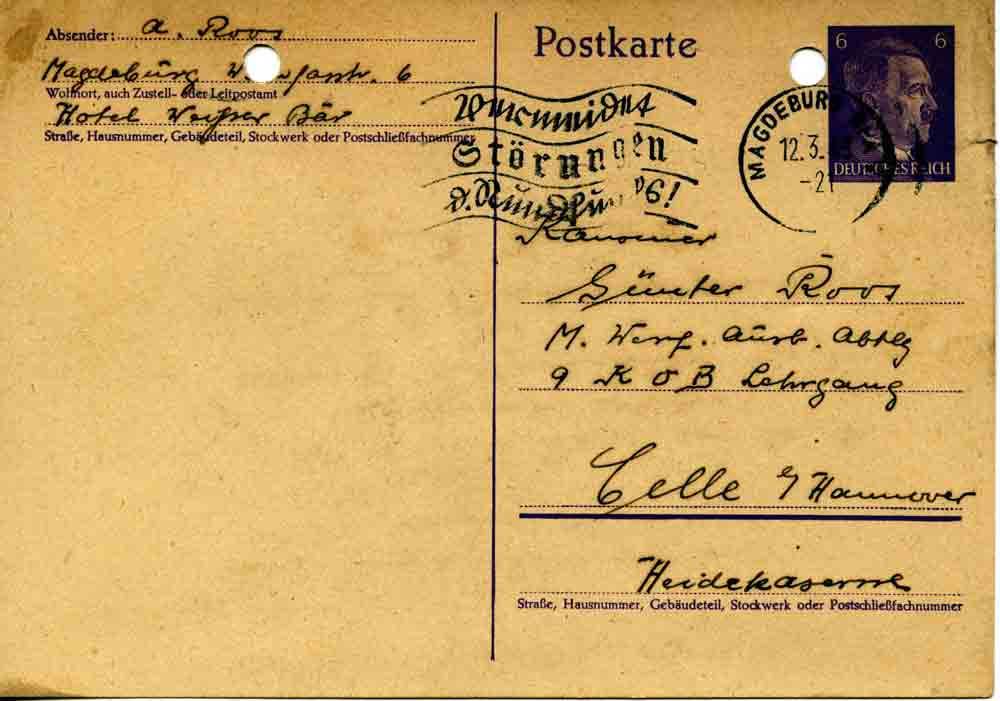 Absender: A. Roos
Magdeburg 6
Wohnort, auch Zustell- oder Leitpostamt
Hotel Weißer Bär
Straße, Hausnummer, Gebäudeteil, Stockwerk oder Postschließfachnummer
Postkarte
6 6
DEUTSCHES REICH
MAGDEBUR
12.3.
-21
Vermeidet
Störungen
d. Rundfunks!
Kanonier
Günter Roos
M. Werf. Ausb. Abtlg
9 K O B Lehrgang
Celle b/Hannover
Heidekaserne
Straße, Hausnummer, Gebäudeteil, Stockwerk oder Postschließfachnummer